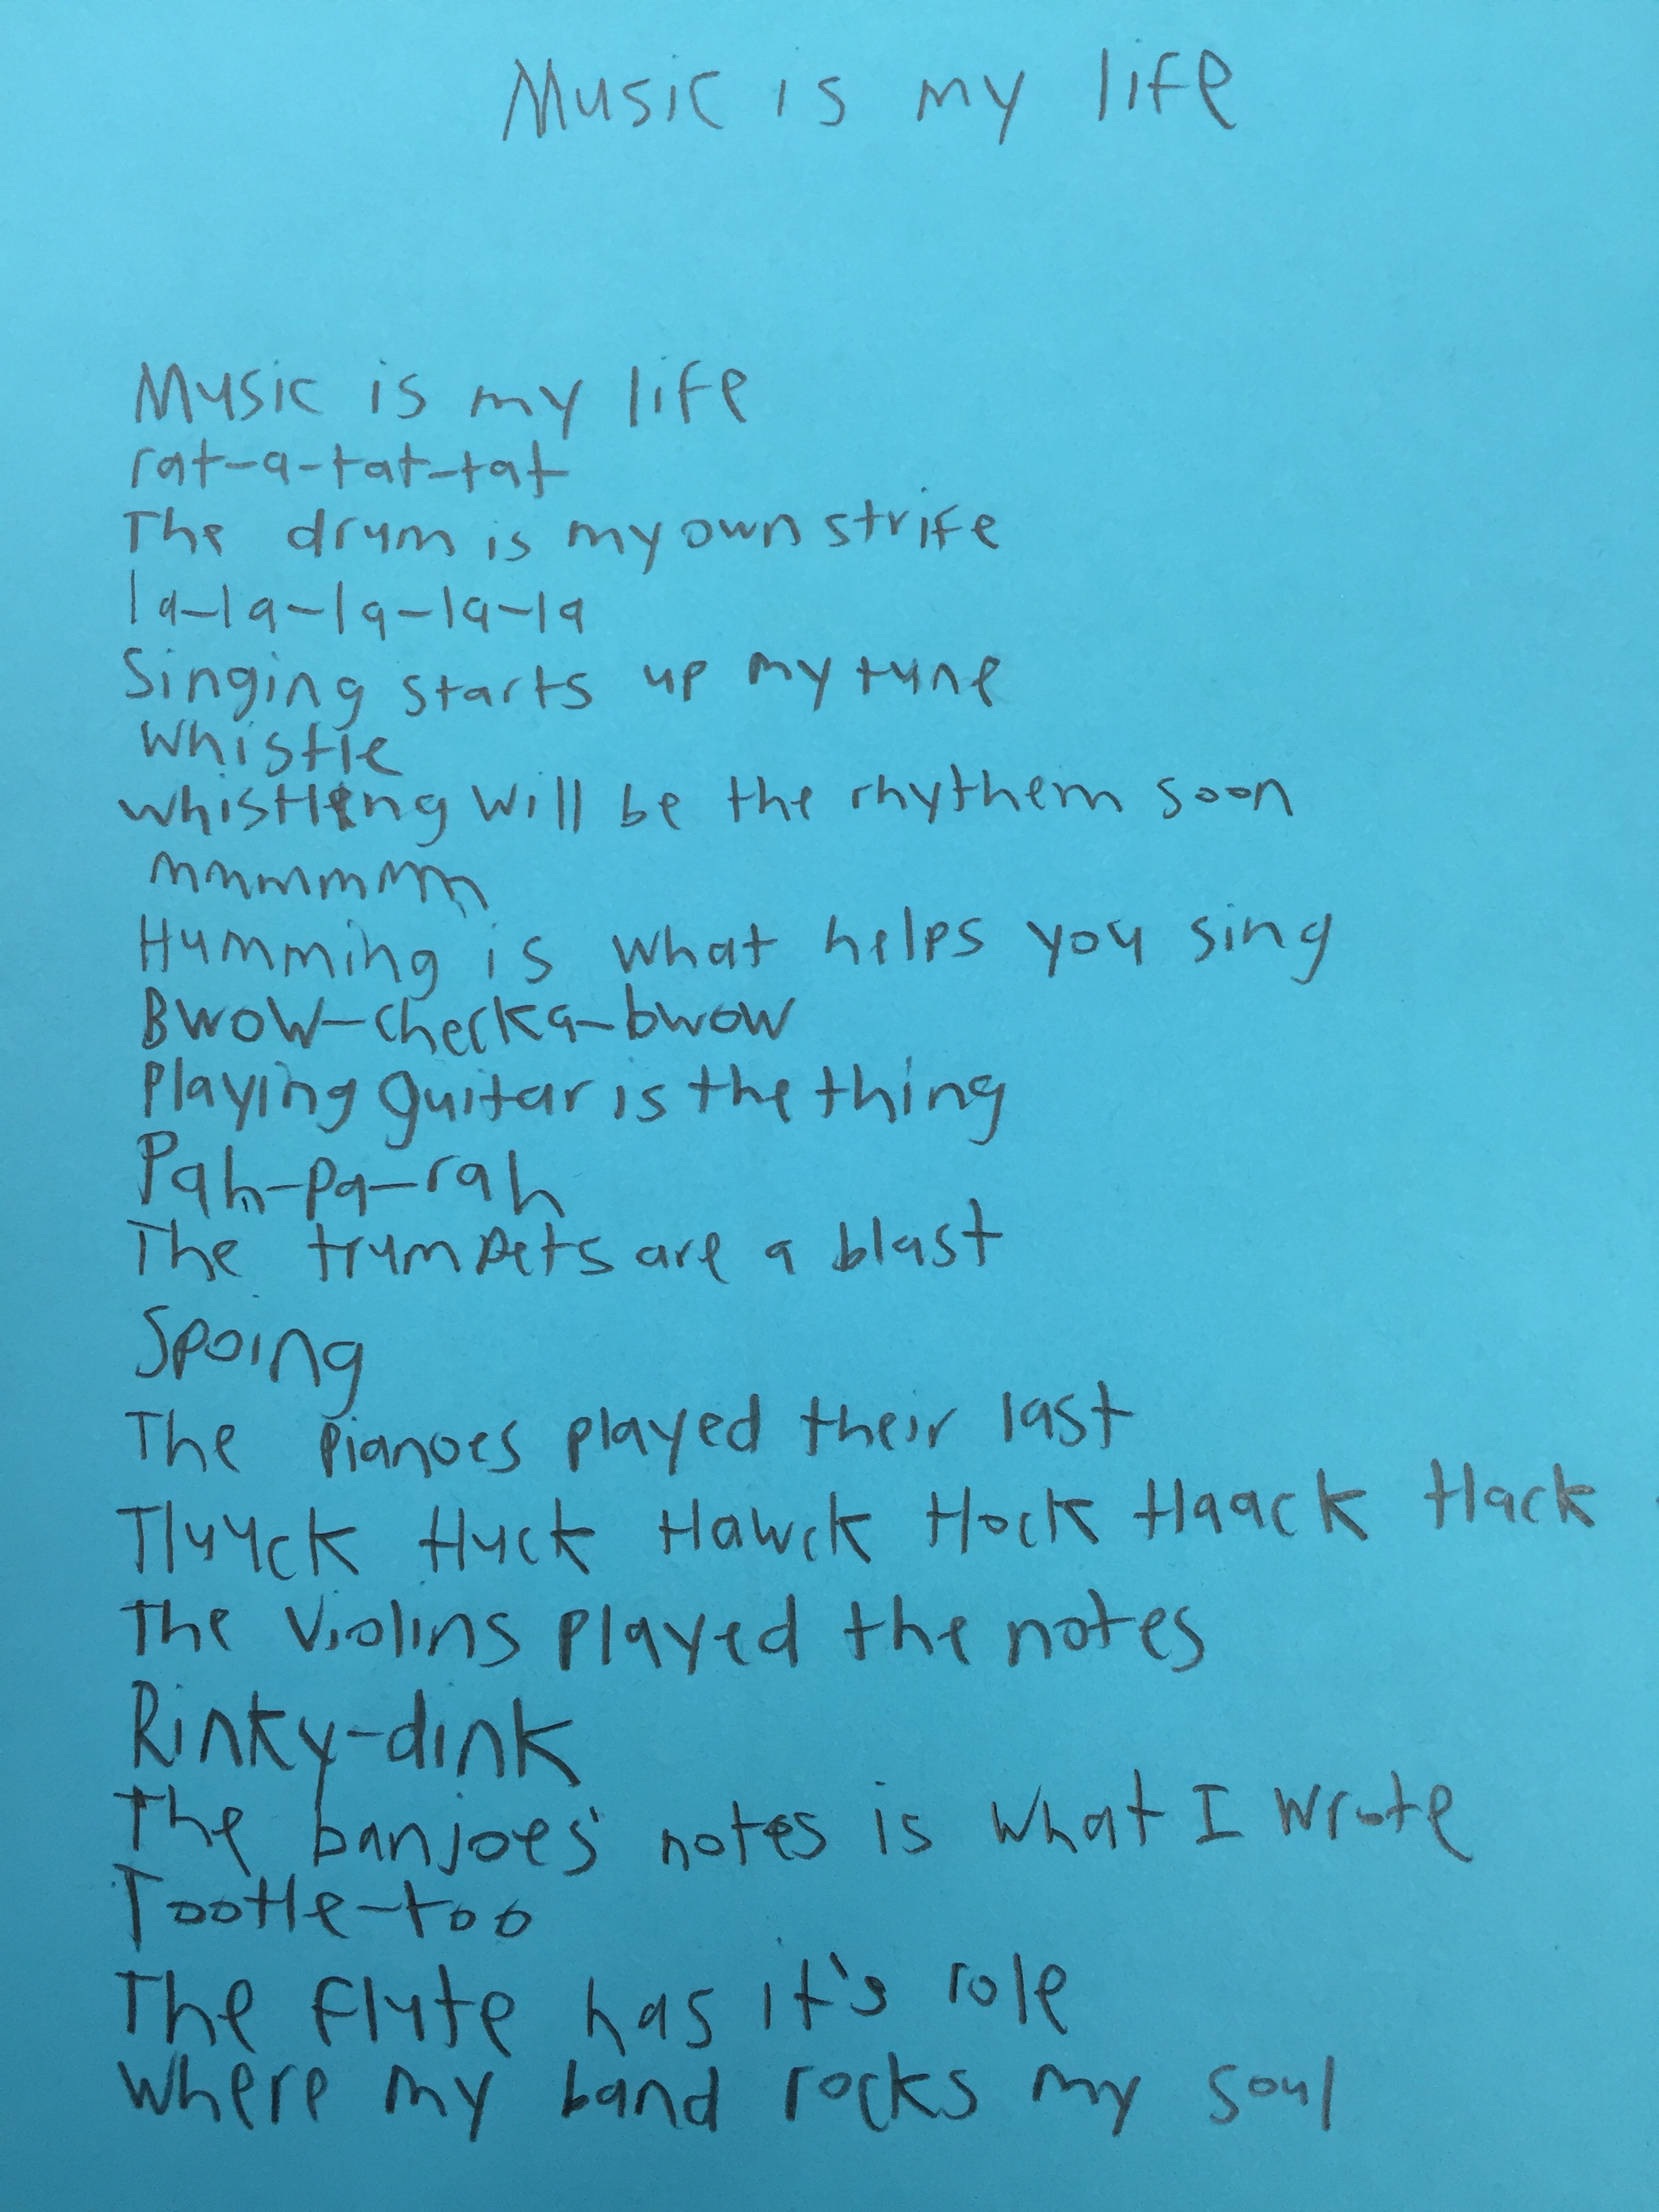 Music is my life
Music is my life
rat-a-tat-tat
The drum is my own strife
la-la-la-la-la
Singing starts up my tune
Whistle
whistling will be the rhythem soon
mmmmmmm
Humming is what helps you sing
Bwow-checka-bwow
Playing guitar is the thing
Pah-pa-rah
The trumpets are a blast
Spoing
The pianoes played their last
Tluuck tluck tlawck tlock tlaack tlack
The violins played the notes
Rinky-dink
The banjoes' notes is what I wrote
Tootle-too
The flute has it's role
Where my band rocks my soul